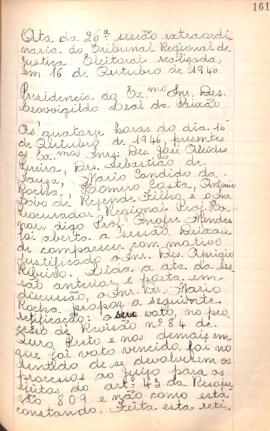 161
Ata da 26ª sessão extraordi
naria do Tribunal Regional de
Justiça Eleitoral realizada
em 16 de Outubro de 1946
Presidencia do Exmo Snr. Des.
Leovigildo Leal da Paixão
As quatorze horas do dia 16
de Outubro de 1946, presentes
os Exmos Snrs. Des. José Alcides
Pereira, Drs. Sebastião de
Souza, Mario Candido da
Rocha, Homero Costa, Antonio
Lobo de Rezende Filho e o Snr
Procurador Regional Prof. Ex
nor, digo Prof. Onofre Mendes
foi aberta a sessão, Deixou
de comparecer com motivo
justificado o Snr. Des. Aprigio
Ribeiro. Lida a ata da ses
são anterior, e posta em
discussão, o Snr. Dr. Mario
Rocha propoz a seguinte
retificação: o seu voto, no pro
cesso de Revisão nº 84 de
Ouro Preto e nos demais em
que foi voto vencido, foi no
sentido de se devolverem os
processos ao juizo para os
efeitos do art: 43 da Resolu
ção 809 e não como está
constando. Feita esta reti